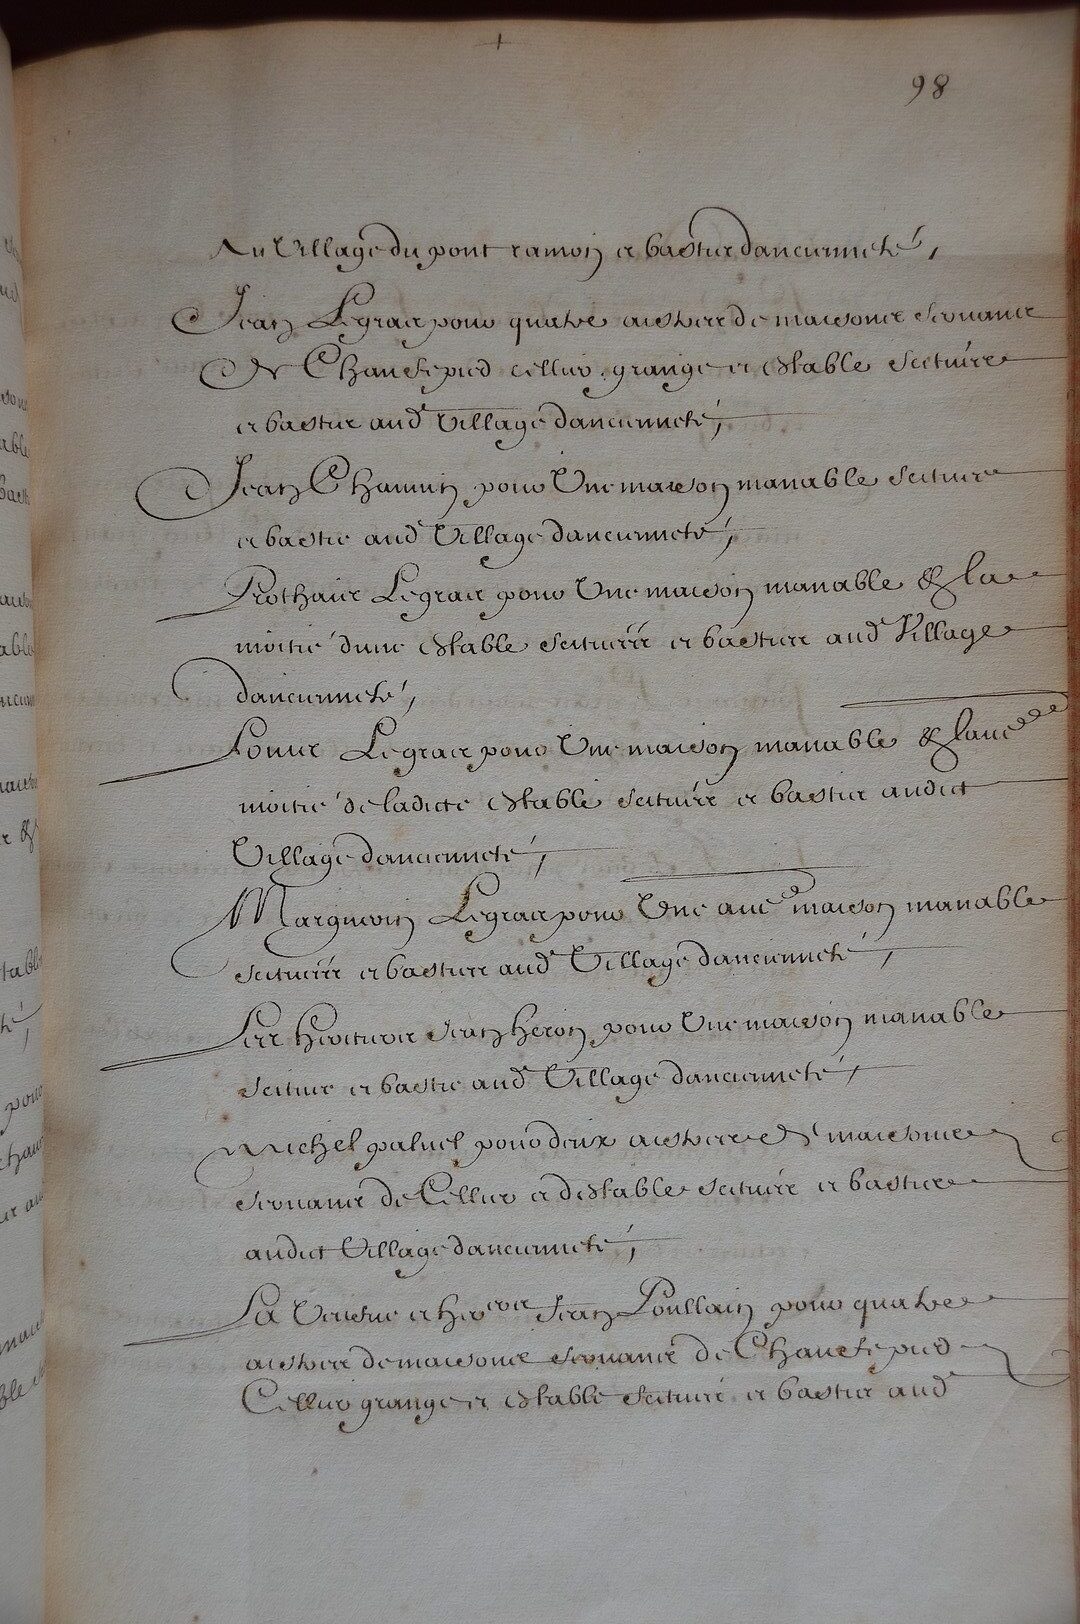 98
Au Village du pont ramon et bastie danciennete,
Jean Legrac pour quatre aistres de maisons servans
de Chauffepied cellier grange et estable scituees
et bastie aud Village danciennete,
Jean Chauuin pour Une maison manable scituee
et bastie aud Village danciennete,
Prothaire Legrac pour Une maison manable & la
moitie dune estable scituees et basties aud Village
danciennete,
Legrac pour Une maison manable & laue
moitie de ladicte estable scituee et bastie audict
Village danciennete,
Legrac pour Une aue maison manable
scituee et bastie aud Village danciennete,
Les heritiers Jean heron pour Une maison manable
scituee et bastie aud Village danciennete,
Michel paluel pour deux aistres de maisons
servans de Cellier et destable scituee et bastie
audict Village danciennete,
La Veufue et hers Jean Poullain pour quatre
aistres de maisons servans de Chauffepied
Cellier grange et estable scituee et bastie aud